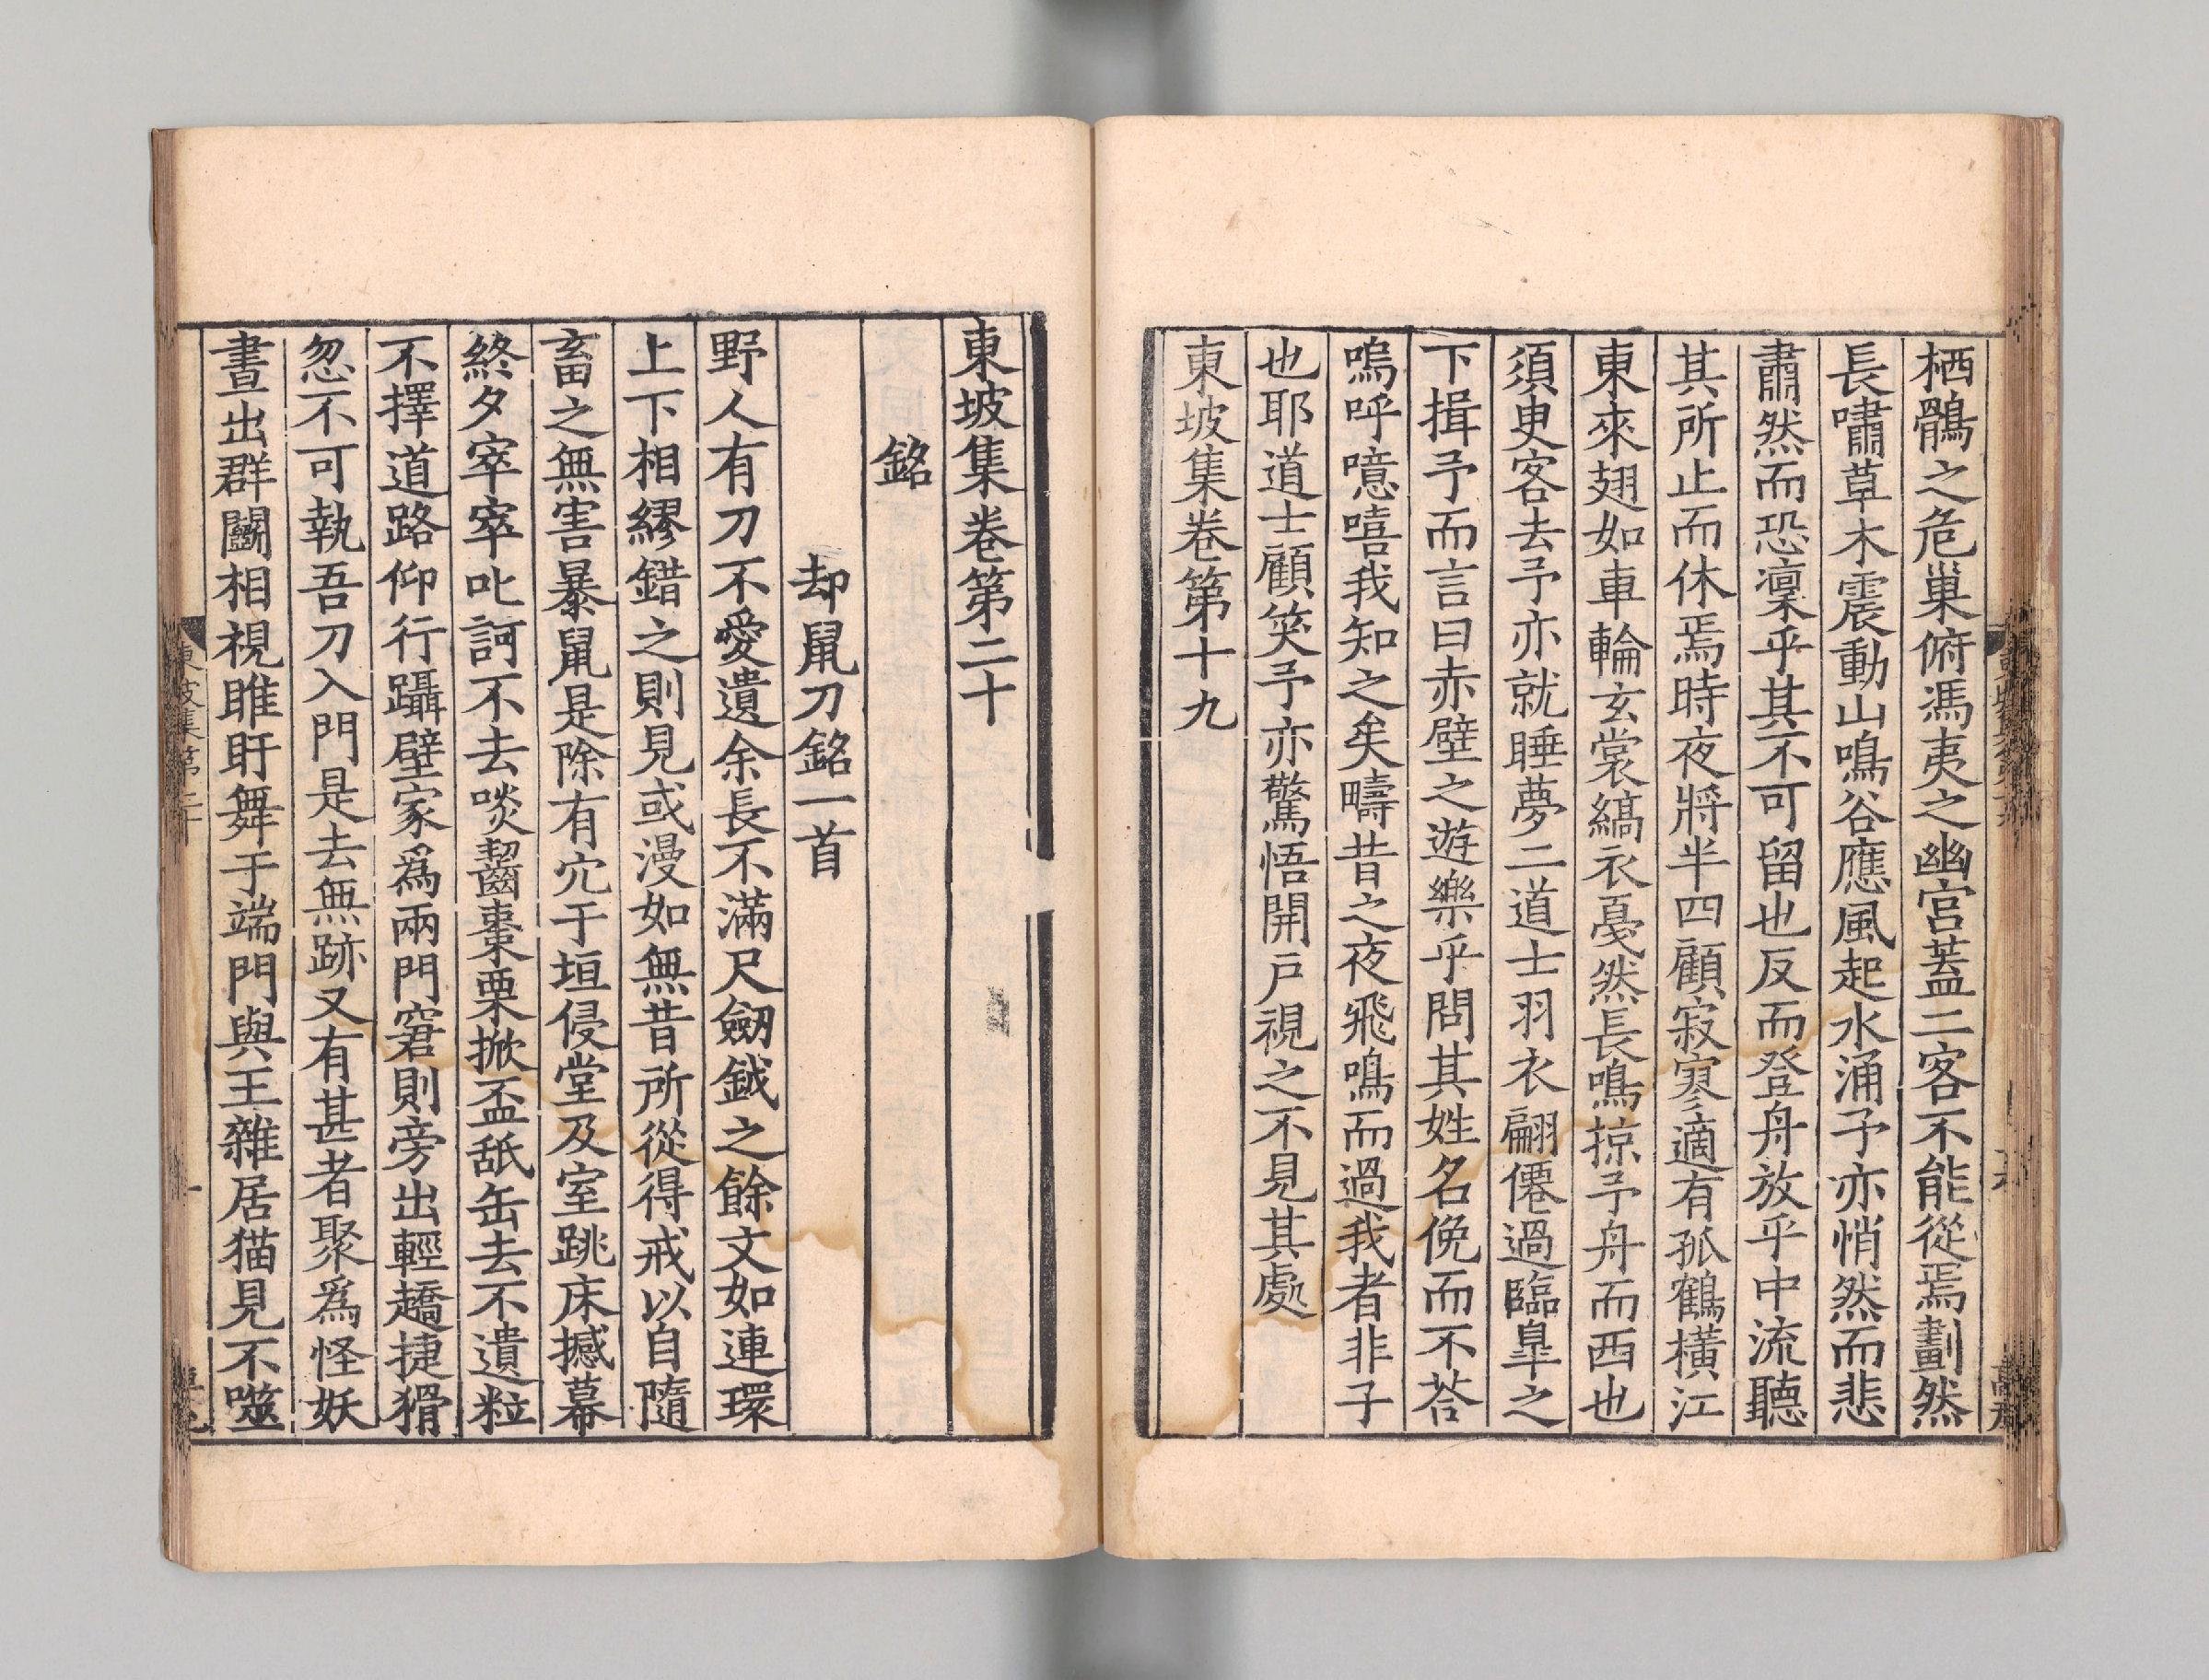 栖鶻之危巢俯馮夷之幽宮蓋二客不能從焉劃然
長嘯草木震動山鳴谷應風起水涌予亦悄然而悲
肅然而恐凜乎其不可留也反而登舟放乎中流聽
其所止而休焉時夜將半四顧寂寥適有孤鶴橫江
東來翅如車輪玄裳縞衣戞然長鳴掠予舟而西也
須臾客去予亦就睡夢二道士羽衣翩僊過臨臯之
下揖予而言曰赤壁之遊樂乎問其姓名俛而不荅
嗚呼噫嘻我知之矣疇昔之夜飛鳴而過我者非子
也耶道士顧笑予亦驚悟開戶視之不見其處
東坡集卷第十九
東坡集卷第二十
銘
却鼠刀銘一首
野人有刀不愛遺余長不滿尺劒鉞之餘文如連環
上下相繆錯之則見或漫如無昔所從得戒以自隨
畜之無害暴鼠是除有穴于垣侵堂及室跳床撼幕
終夕窣窣叱訶不去啖齧棗栗掀盃舐缶去不遺粒
不擇道路仰行躡壁家爲兩門窘則旁出輕趫捷猾
忽不可執吾刀入門是去無跡又有甚者聚爲怪妖
晝出群鬬相視睢盱舞于端門與王雜居猫見不噬
東坡集第二十
一